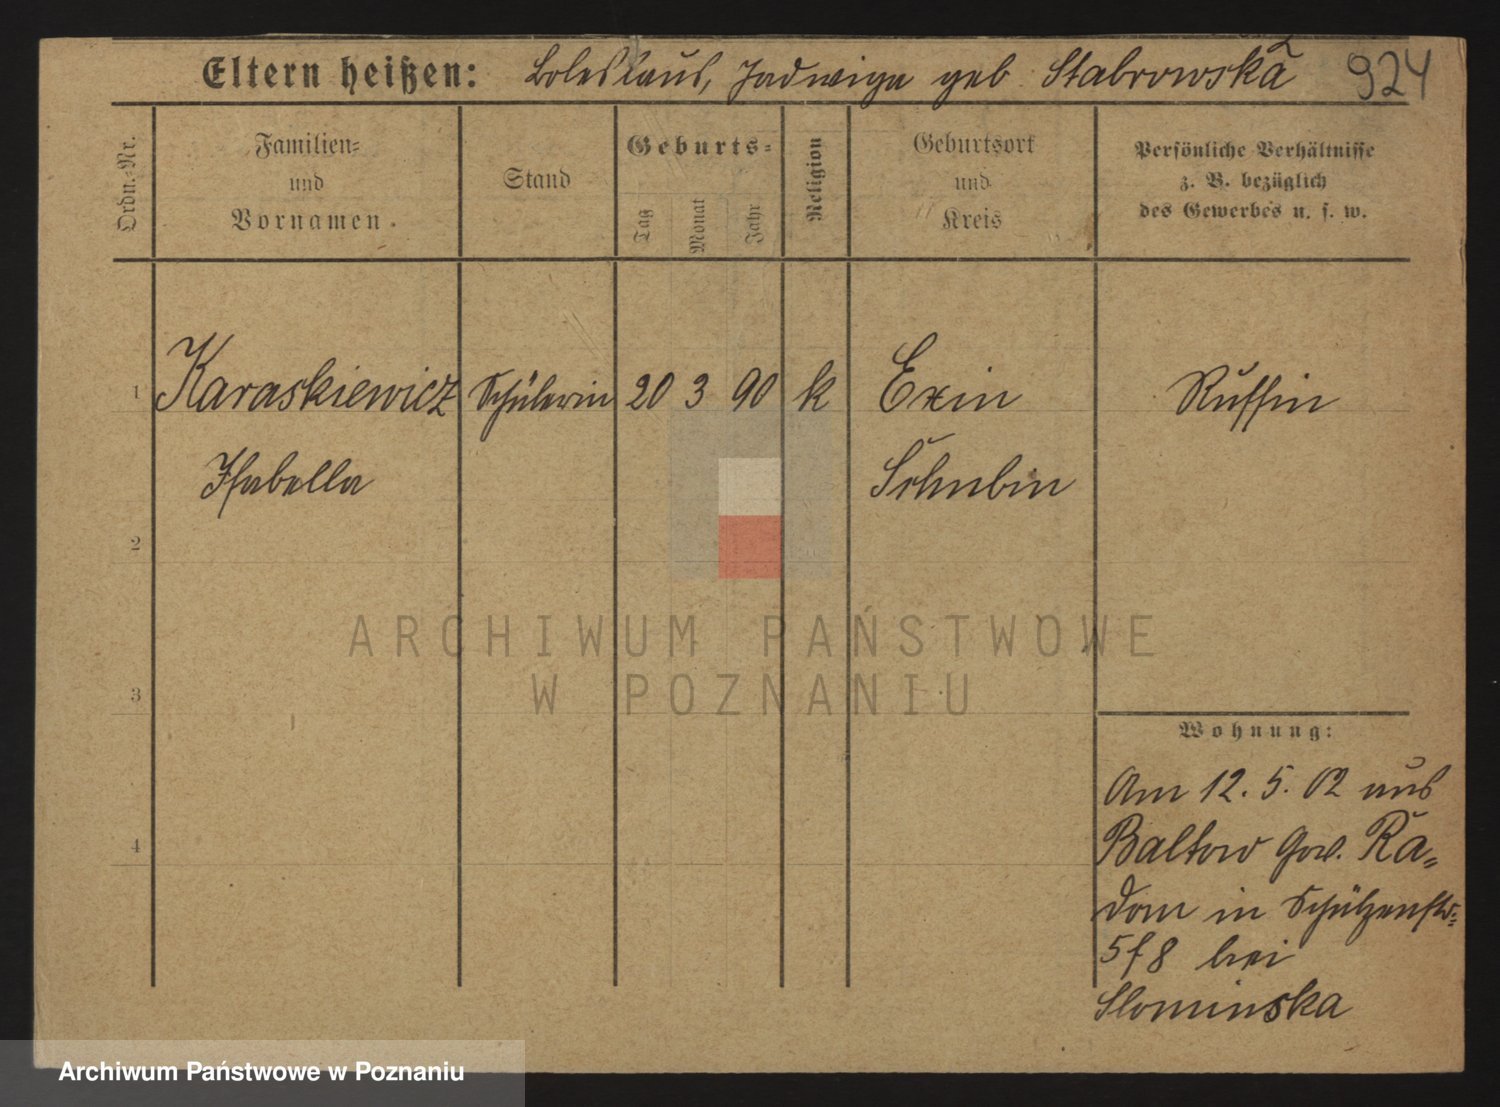 Eltern heißen: Boleslaus, Jadwiga geb Stabrowska 924
Ordn.-Nr.
Familien-
und
Vornamen.
Stand
Geburts-
Tag
Monat
Jahr
Religion
Geburtsort
und
Kreis
Persönliche Verhältnisse
z. B. bezüglich
des Gewerbes u. s. w.
1 Karaskiewicz Schülerin 20 3 90 k Exin Russin
Isabella Schubin
2
3
4
Wohnung:
Am 12. 5. 02 aus
Baltow Gov. Ra-
dom in Schützenstr:
5 f 8 bei
Slominska
ARCHIWUM PAŃSTWOWE
W POZNANIU
Archiwum Państwowe w Poznaniu